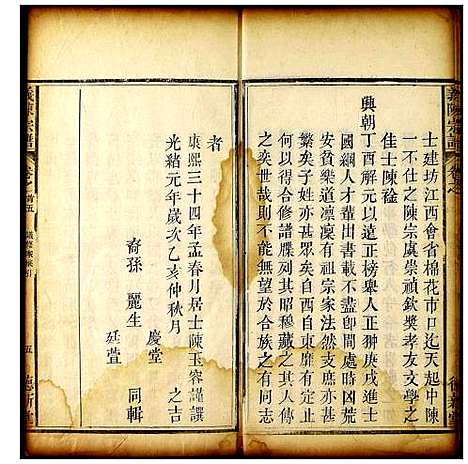 士建坊江西會省棉花市口迄天起中陳
一不仕之陳宗虞崇禎欽獎孝友文學之
佳士陳
興朝丁酉解元以遠正榜舉人正翀庚戌進士
國綱人才輩出書載不盡卽間處時凶荒
安貧樂道凛凛有祖宗家法然支庶日
繁矣子姓亦甚眾矣自西自東靡有定止
何以合修譜牒列其昭穆藏之其人傳
之奕世哉則不能無望於合族之有同志
者
康熙三十四年孟春月居士陳玉容謹譔
光緒元年歲次乙亥仲秋月 之吉
慶堂
裔孫 麗生 同輯
廷萱
義陳宗譜
五
德新堂